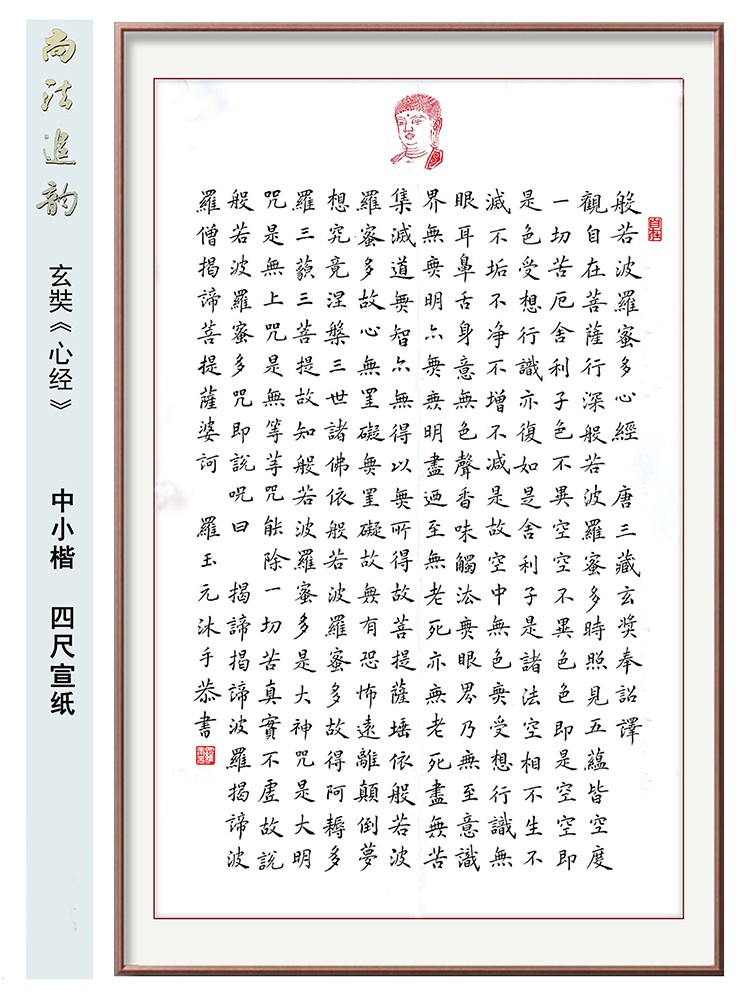 尚法追韵
玄奘《心经》
中小楷 四尺宣纸
自在
般若波羅蜜多心經 唐三藏玄奘奉詔譯
觀自在菩薩行深般若波羅蜜多時照見五蘊皆空度
一切苦厄舍利子色不異空空不異色色即是空空即
是色受想行識亦復如是舍利子是諸法空相不生不
滅不垢不净不增不减是故空中無色無受想行識無
眼耳鼻舌身意無色聲香味觸法無眼界乃無至意識
界無無明亦無無明盡迺至無老死亦無老死盡無苦
集滅道無智亦無得以無所得故菩提薩埵依般若波
羅蜜多故心無罣礙無罣礙故無有恐怖遠離顛倒夢
想究竟涅槃三世諸佛依般若波羅蜜多故得阿耨多
羅三藐三菩提故知般若波羅蜜多是大神咒是大明
咒是無上咒是無等等咒能除一切苦真實不虛故說
般若波羅蜜多咒即說呪曰 揭諦揭諦波羅揭諦波
羅僧揭諦菩提薩婆訶 羅玉元沐手恭書